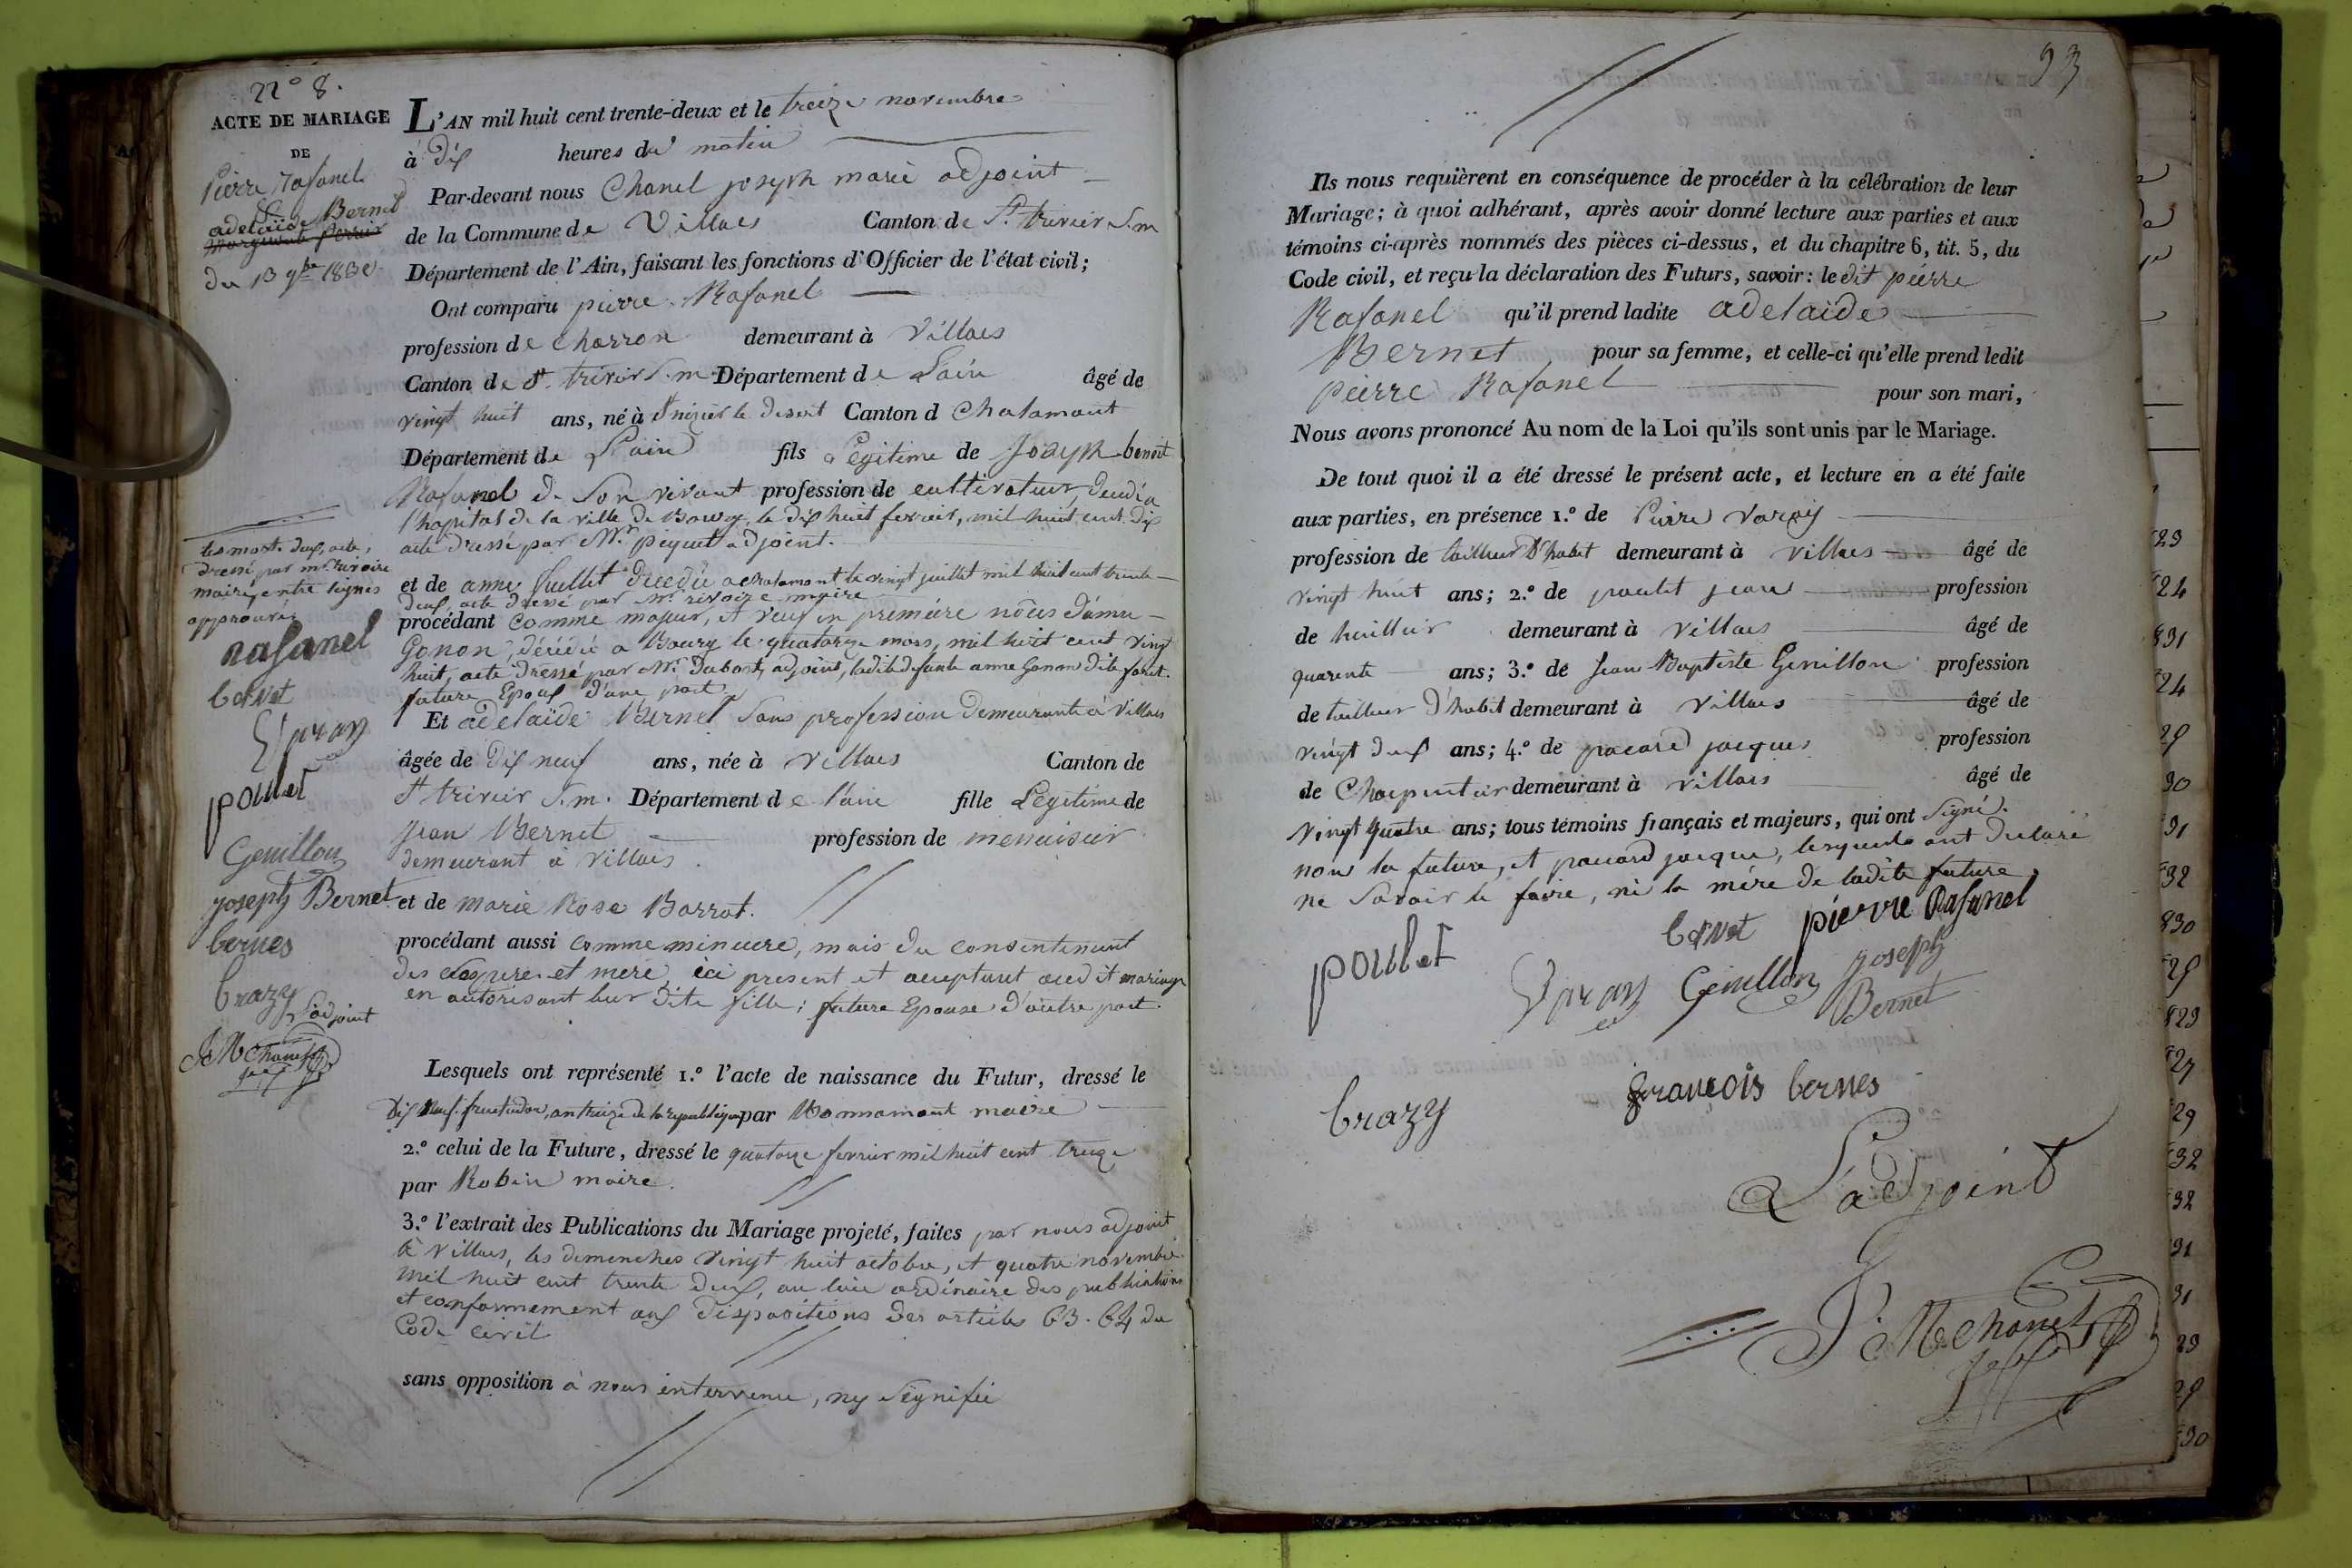 n° 8.
ACTE DE MARIAGE
DE
Pierre Rafanel
&
adelaïde Bernet
du 13 9bre 1832
L'AN mil huit cent trente-deux et le treize novembre
à Dix heures du matin
Par-devant nous Chanel joseph marie adjoint
de la Commune de Villars Canton de St. trivier S.m
Département de l'Ain, faisant les fonctions d'Officier de l'état civil;
Ont comparu pierre Rafanel
profession de charron demeurant à Villars
Canton de St. trivier S.m Département de Lain âgé de
vingt huit ans, né à St nizier le desert Canton d Chalamont
Département de Lain fils Légitime de Joseph benoit
Rafanel de Son vivant profession de cultivateur, decédé a
l'hopital de la ville de Bourg, le dix huit fevrier, mil huit cent dix
acte dressé par Mr. piquet adjoint.
et de anne Juillet decedée a chalamont le vingt juillet mil huit cent trente
deux, acte dressé par Mr. rivoire maire
procédant comme majeur, et veuf en premiére nôces d'anne
Gonon, décédée a Bourg le quatorze mars, mil huit cent vingt
huit, acte dressé par Mr. Dubost, adjoint, ladite defunte anne Gonon dite foret.
future Epoux d'une part
Et adelaïde Bernet Sans profession demeurante à Villars
âgée de Dix neuf ans, née à Villars Canton de
St trivier S.m. Département de l'ain fille Légitime de
Jean Bernet profession de menuisier
demeurant à Villars.
et de marie Rose Barrat.
procédant aussi comme mineure, mais du consentement
des père et mere, ici present et acceptant audit mariage
en autorisant leur dite fille; future Epouse d'autre part.
Lesquels ont représenté 1.° l'acte de naissance du Futur, dressé le
Dix neuf fructidor, an treize de la republique par Monnamant maire
2.° celui de la Future, dressé le quatorze fevrier mil huit cent treize
par Robin maire.
3.° l'extrait des Publications du Mariage projeté, faites par nous adjoint
à Villars, les dimenches vingt huit octobre, et quatre novembre
mil huit cent trente deux, au lieu ordinaire des publications
et conformement aux dispositions des articles 63. 64 du
Code civil
sans opposition à nous intervenue, ny Signifiée
les mots deux, acte,
dressé par mr. rivoire
maire, entre lignes
approuvés
Rafanel
bernet
poulet
Genillon
joseph Bernet
bernes
brazy
L'adjoint
J M Chanel
93
Ils nous requièrent en conséquence de procéder à la célébration de leur
Mariage; à quoi adhérant, après avoir donné lecture aux parties et aux
témoins ci-après nommés des pièces ci-dessus, et du chapitre 6, tit. 5, du
Code civil, et reçu la déclaration des Futurs, savoir: le dit pierre
Rafanel qu'il prend ladite adelaïde
Bernet pour sa femme, et celle-ci qu'elle prend ledit
pierre Rafanel pour son mari,
Nous avons prononcé Au nom de la Loi qu'ils sont unis par le Mariage.
De tout quoi il a été dressé le présent acte, et lecture en a été faite
aux parties, en présence 1.° de Pierre
profession de tailleur d'habit demeurant à villars âgé de
vingt huit ans; 2.° de poulet jean profession
de huillier demeurant à Villars âgé de
quarente ans; 3.° de Jean Baptiste Genillon profession
de tailleur d'habit demeurant à Villars âgé de
vingt deux ans; 4.° de pacard jacques profession
de Charpentier demeurant à villars âgé de
Vingt quatre ans; tous témoins français et majeurs, qui ont Signé.
non la future, et paccard jacque, lesquels ont declaré
ne Savoir le faire, ni la mére de ladite future.
poulet
bernet
pierre Rafanel
Genillon
joseph
Bernet
brazy
françois bernes
L'adjoint
J M Chanel